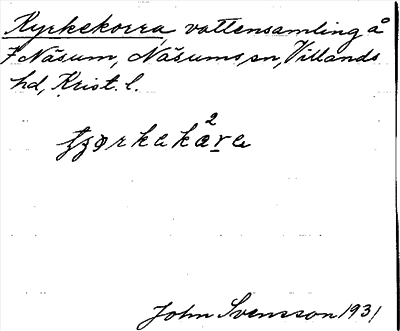 Kyrkekorra, vattensamling å
7 Näsum, Näsums sn, Villands
hd, Krist. l.
2
John Svensson 1931